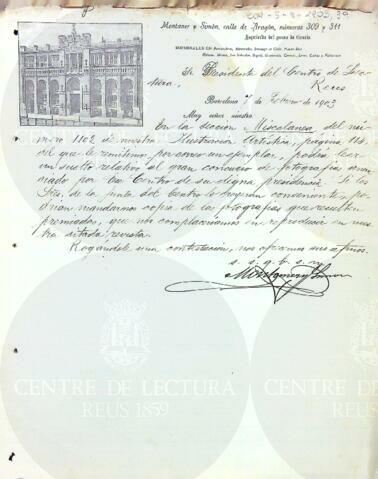 Montaner y Simón, calle de Aragón, números 309 y 311
Sr. Presidente del Centro de Lectura
Reus
Barcelona 7 Febrero de 1903
Muy señor nuestro
En la seccion Miscelanea del número
1102 de nuestra Ilustracion Artistica, pagina 118,
del que le remitimos por correo un ejemplar, podrá leer
un suelto relativo al gran concurso de fotografias anunciado
por ese Centro de su digna presidencia. Si los
Sres. de la junta del Centro lo juzgan conveniente, podrian
mandarnos copia de las fotografias que resulten
premiadas, que nos complaceriamos en reproducir en nuestra
citada revista.
Rogandole una contestacion, nos ofrecemos sus afmos.
s. s. q. b. s. m.
Montaner y Simon
CENTRE DE LECTURA
REUS 1859
CENTRE DE LECTURA
REUS 1859